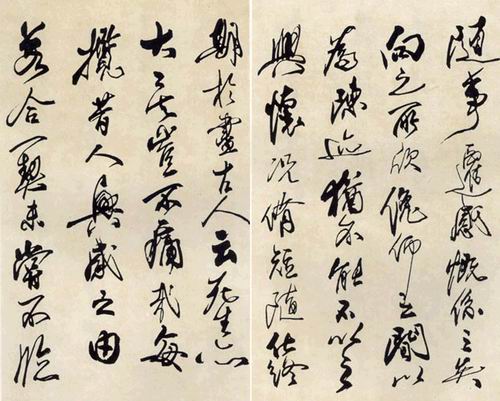 隨事遷感慨係之矣
向之所欣俛仰之閒以
為陳迹猶不能不以之
興懷況脩短隨化終
期於盡古人云死生亦
大矣豈不痛哉每
攬昔人興感之由
若合一契未嘗不臨